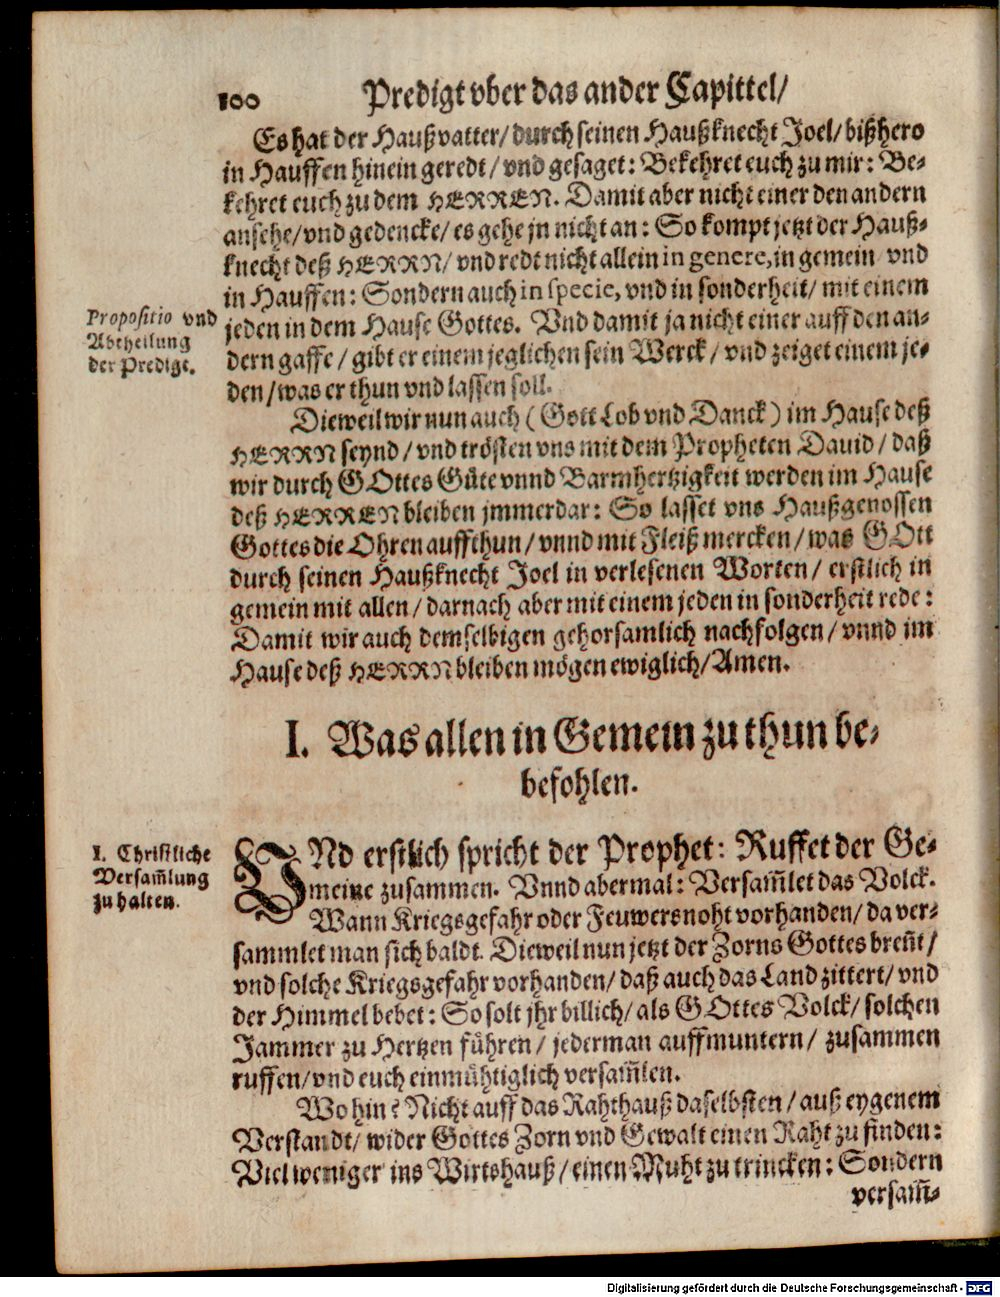 100 Predigt vber das ander Capittel/
Es hat der Haußvatter/ durch seinen Haußknecht Joel/ bißhero
in Hauffen hinein geredt/ vnd gesaget: Bekehret euch zu mir: Be-
kehret euch zu dem HERREN. Damit aber nicht einer den andern
ansehe/ vnd gedencke/ es gehe jn nicht an: So kompt jetzt der Hauß-
knecht deß HERRN/ vnd redt nicht allein in genere, in gemein vnd
in Hauffen: Sondern auch in specie, vnd in sonderheit/ mit einem
Propositio vnd
Abtheilung
der Predigt.
jeden in dem Hause Gottes. Vnd damit ja nicht einer auff den an-
dern gaffe/ gibt er einem jeglichen sein Werck/ vnd zeiget einem je-
den/ was er thun vnd lassen soll.
Dieweil wir nun auch (Gott Lob vnd Danck) im Hause deß
HERRN seynd/ vnd trösten vns mit dem Propheten Dauid/ daß
wir durch GOttes Güte vnnd Barmhertzigkeit werden im Hause
deß HERREN bleiben jmmerdar: So lasset vns Haußgenossen
Gottes die Ohren auffthun/ vnnd mit Fleiß mercken/ was GOtt
durch seinen Haußknecht Joel in verlesenen Worten/ erstlich in
gemein mit allen/ darnach aber mit einem jeden in sonderheit rede:
Damit wir auch demselbigen gehorsamlich nachfolgen/ vnnd im
Hause deß HERRN bleiben mögen ewiglich/ Amen.
I. Was allen in Gemein zu thun be-
befohlen.
1. Christliche
Versam̃lung
zu halten.
VNd erstlich spricht der Prophet: Ruffet der Ge-
meine zusammen. Vnnd abermal: Versam̃let das Volck.
Wann Kriegsgefahr oder Feuwersnoht vorhanden/ da ver-
sammlet man sich baldt. Dieweil nun jetzt der Zorns Gottes breñt/
vnd solche Kriegsgefahr vorhanden/ daß auch das Land zittert/ vnd
der Himmel bebet: So solt jhr billich/ als GOttes Volck/ solchen
Jammer zu Hertzen führen/ jederman auffmuntern/ zusammen
ruffen/ vnd euch einmühtiglich versam̃len.
Wo hin? Nicht auff das Rahthauß daselbsten/ auß eygenem
Verstandt/ wider Gottes Zorn vnd Gewalt einen Raht zu finden:
Viel weniger ins Wirtshauß/ einen Muht zu trincken: Sondern
versam̃-
Digitalisierung gefördert durch die Deutsche Forschungsgemeinschaft - DFG